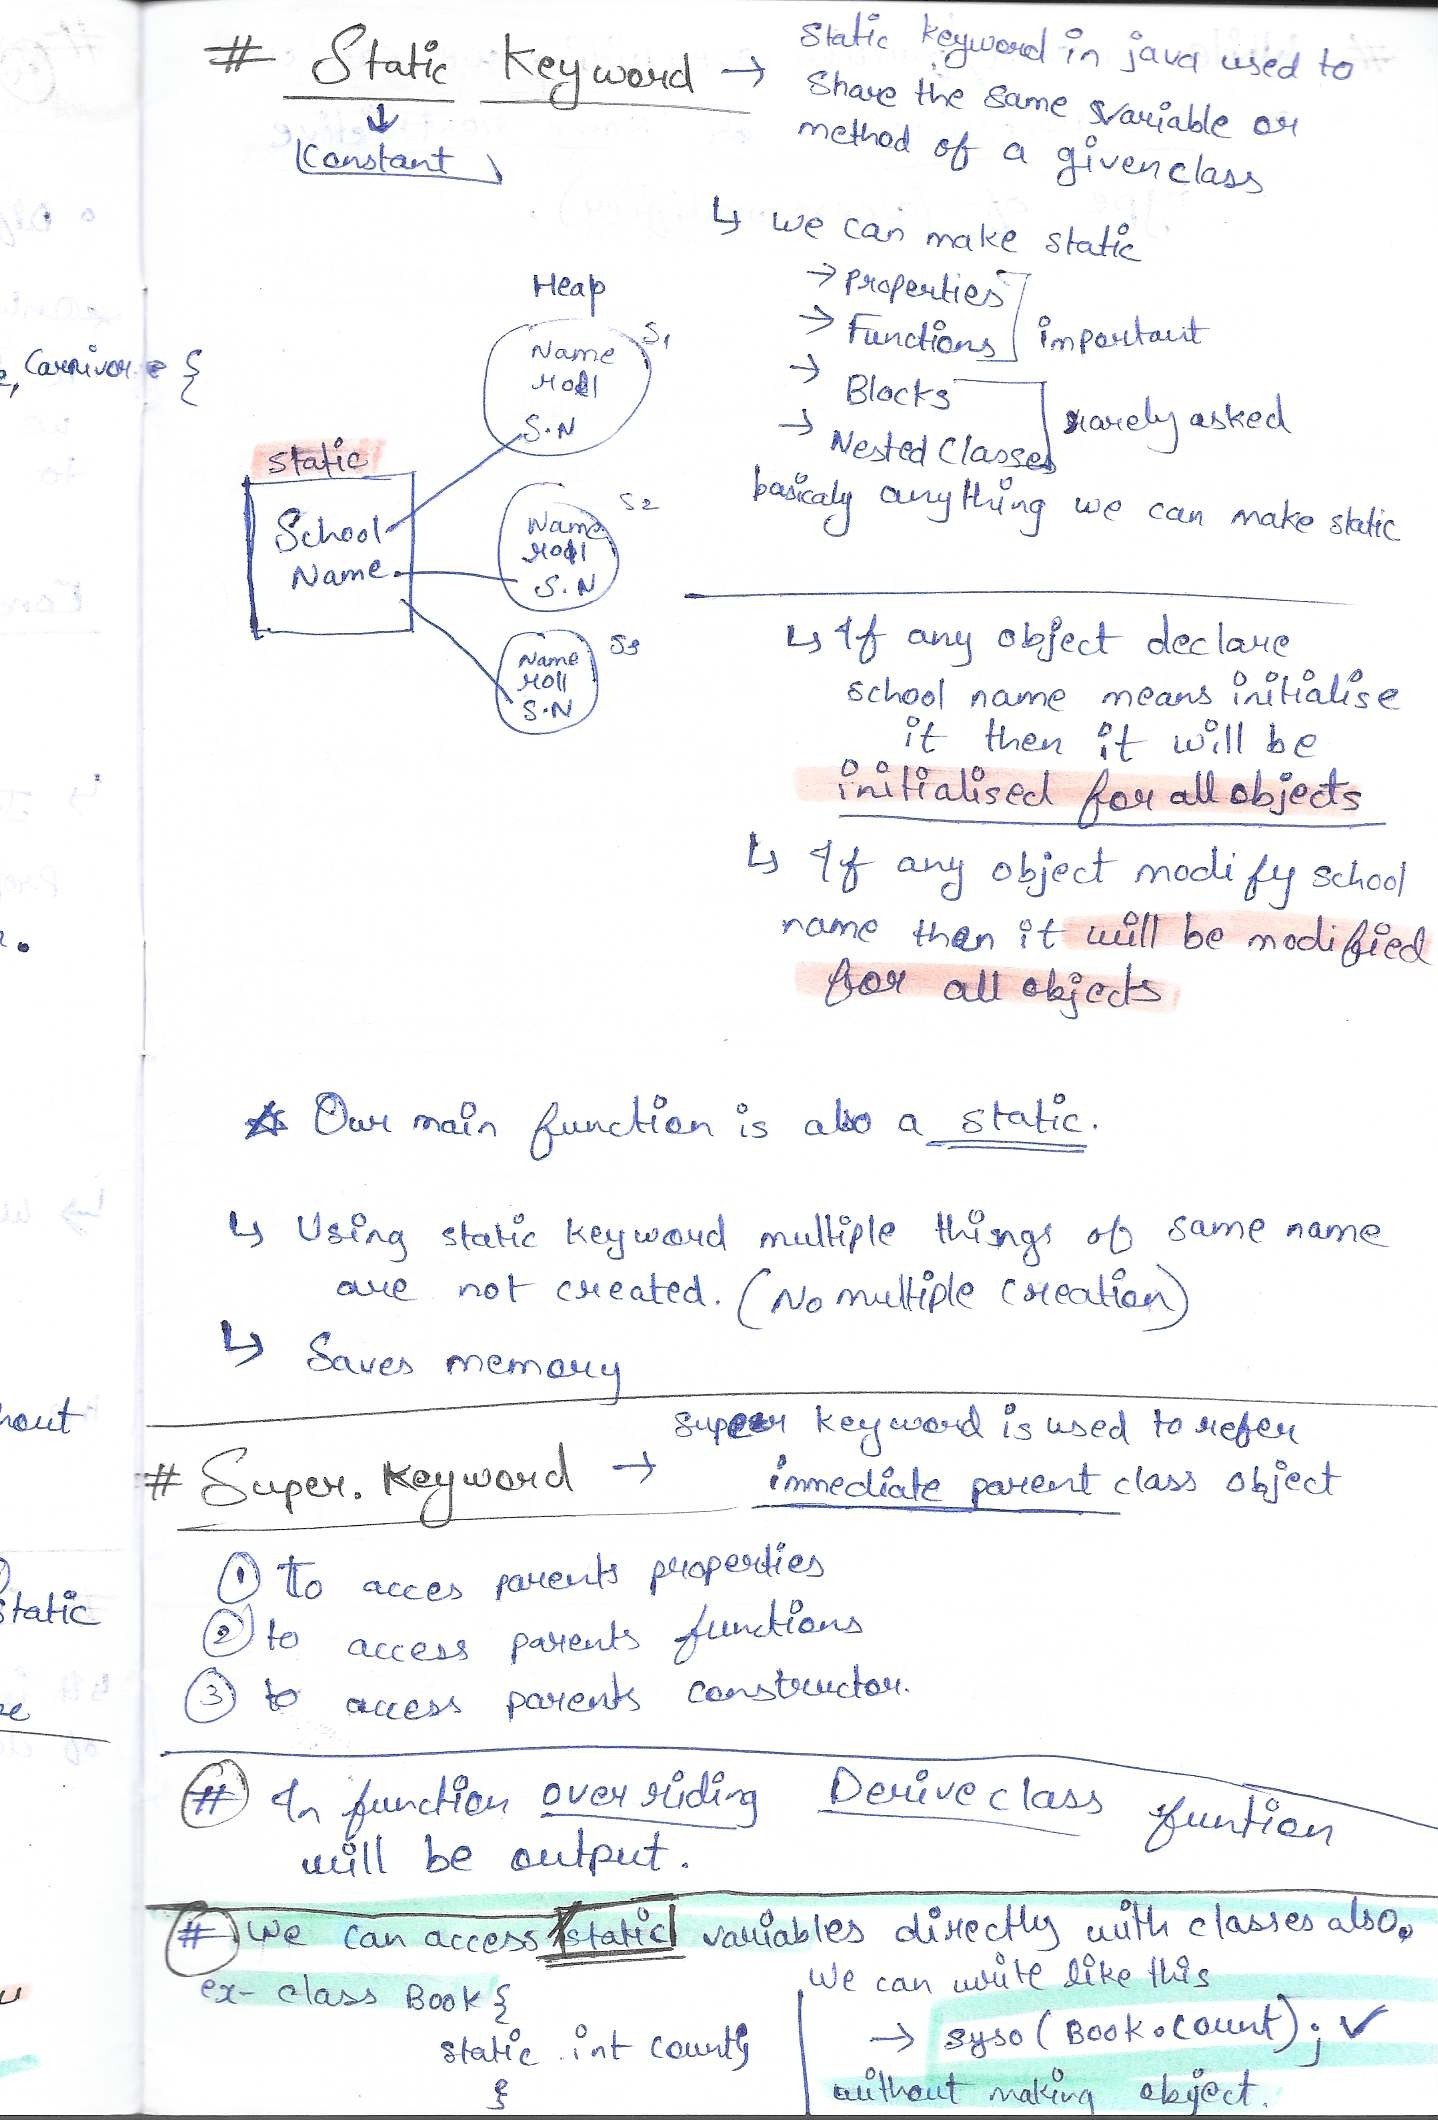 # Static Keyword → Static keyword in java used to
share the same variable or
method of a given class
↓
Constant
↳ we can make static
→ Properties
→ Functions
important
→ Blocks
→ Nested Classes
rarely asked
basicaly anything we can make static
Heap
S1
Name
roll
S.N
static
School
Name
S2
Name
roll
S.N
S3
Name
roll
S.N
↳ If any object declare
school name means initialise
it then it will be
initialised for all objects
↳ If any object modify school
name then it will be modified
for all objects
☆ Our main function is also a static.
↳ Using static keyword multiple things of same name
are not created. (No multiple creation)
↳ Saves memory
# Super. Keyword → super keyword is used to refer
immediate parent class object
① To acces parents properties
② to access parents functions
③ to access parents constructor.
# In function overriding Derive class funtion
will be output.
# We can access static variables directly with classes also.
ex- class Book {
static int count;
}
we can write like this
→ syso (Book.count); ✓
without making object.
, Carnivore {
hout
static